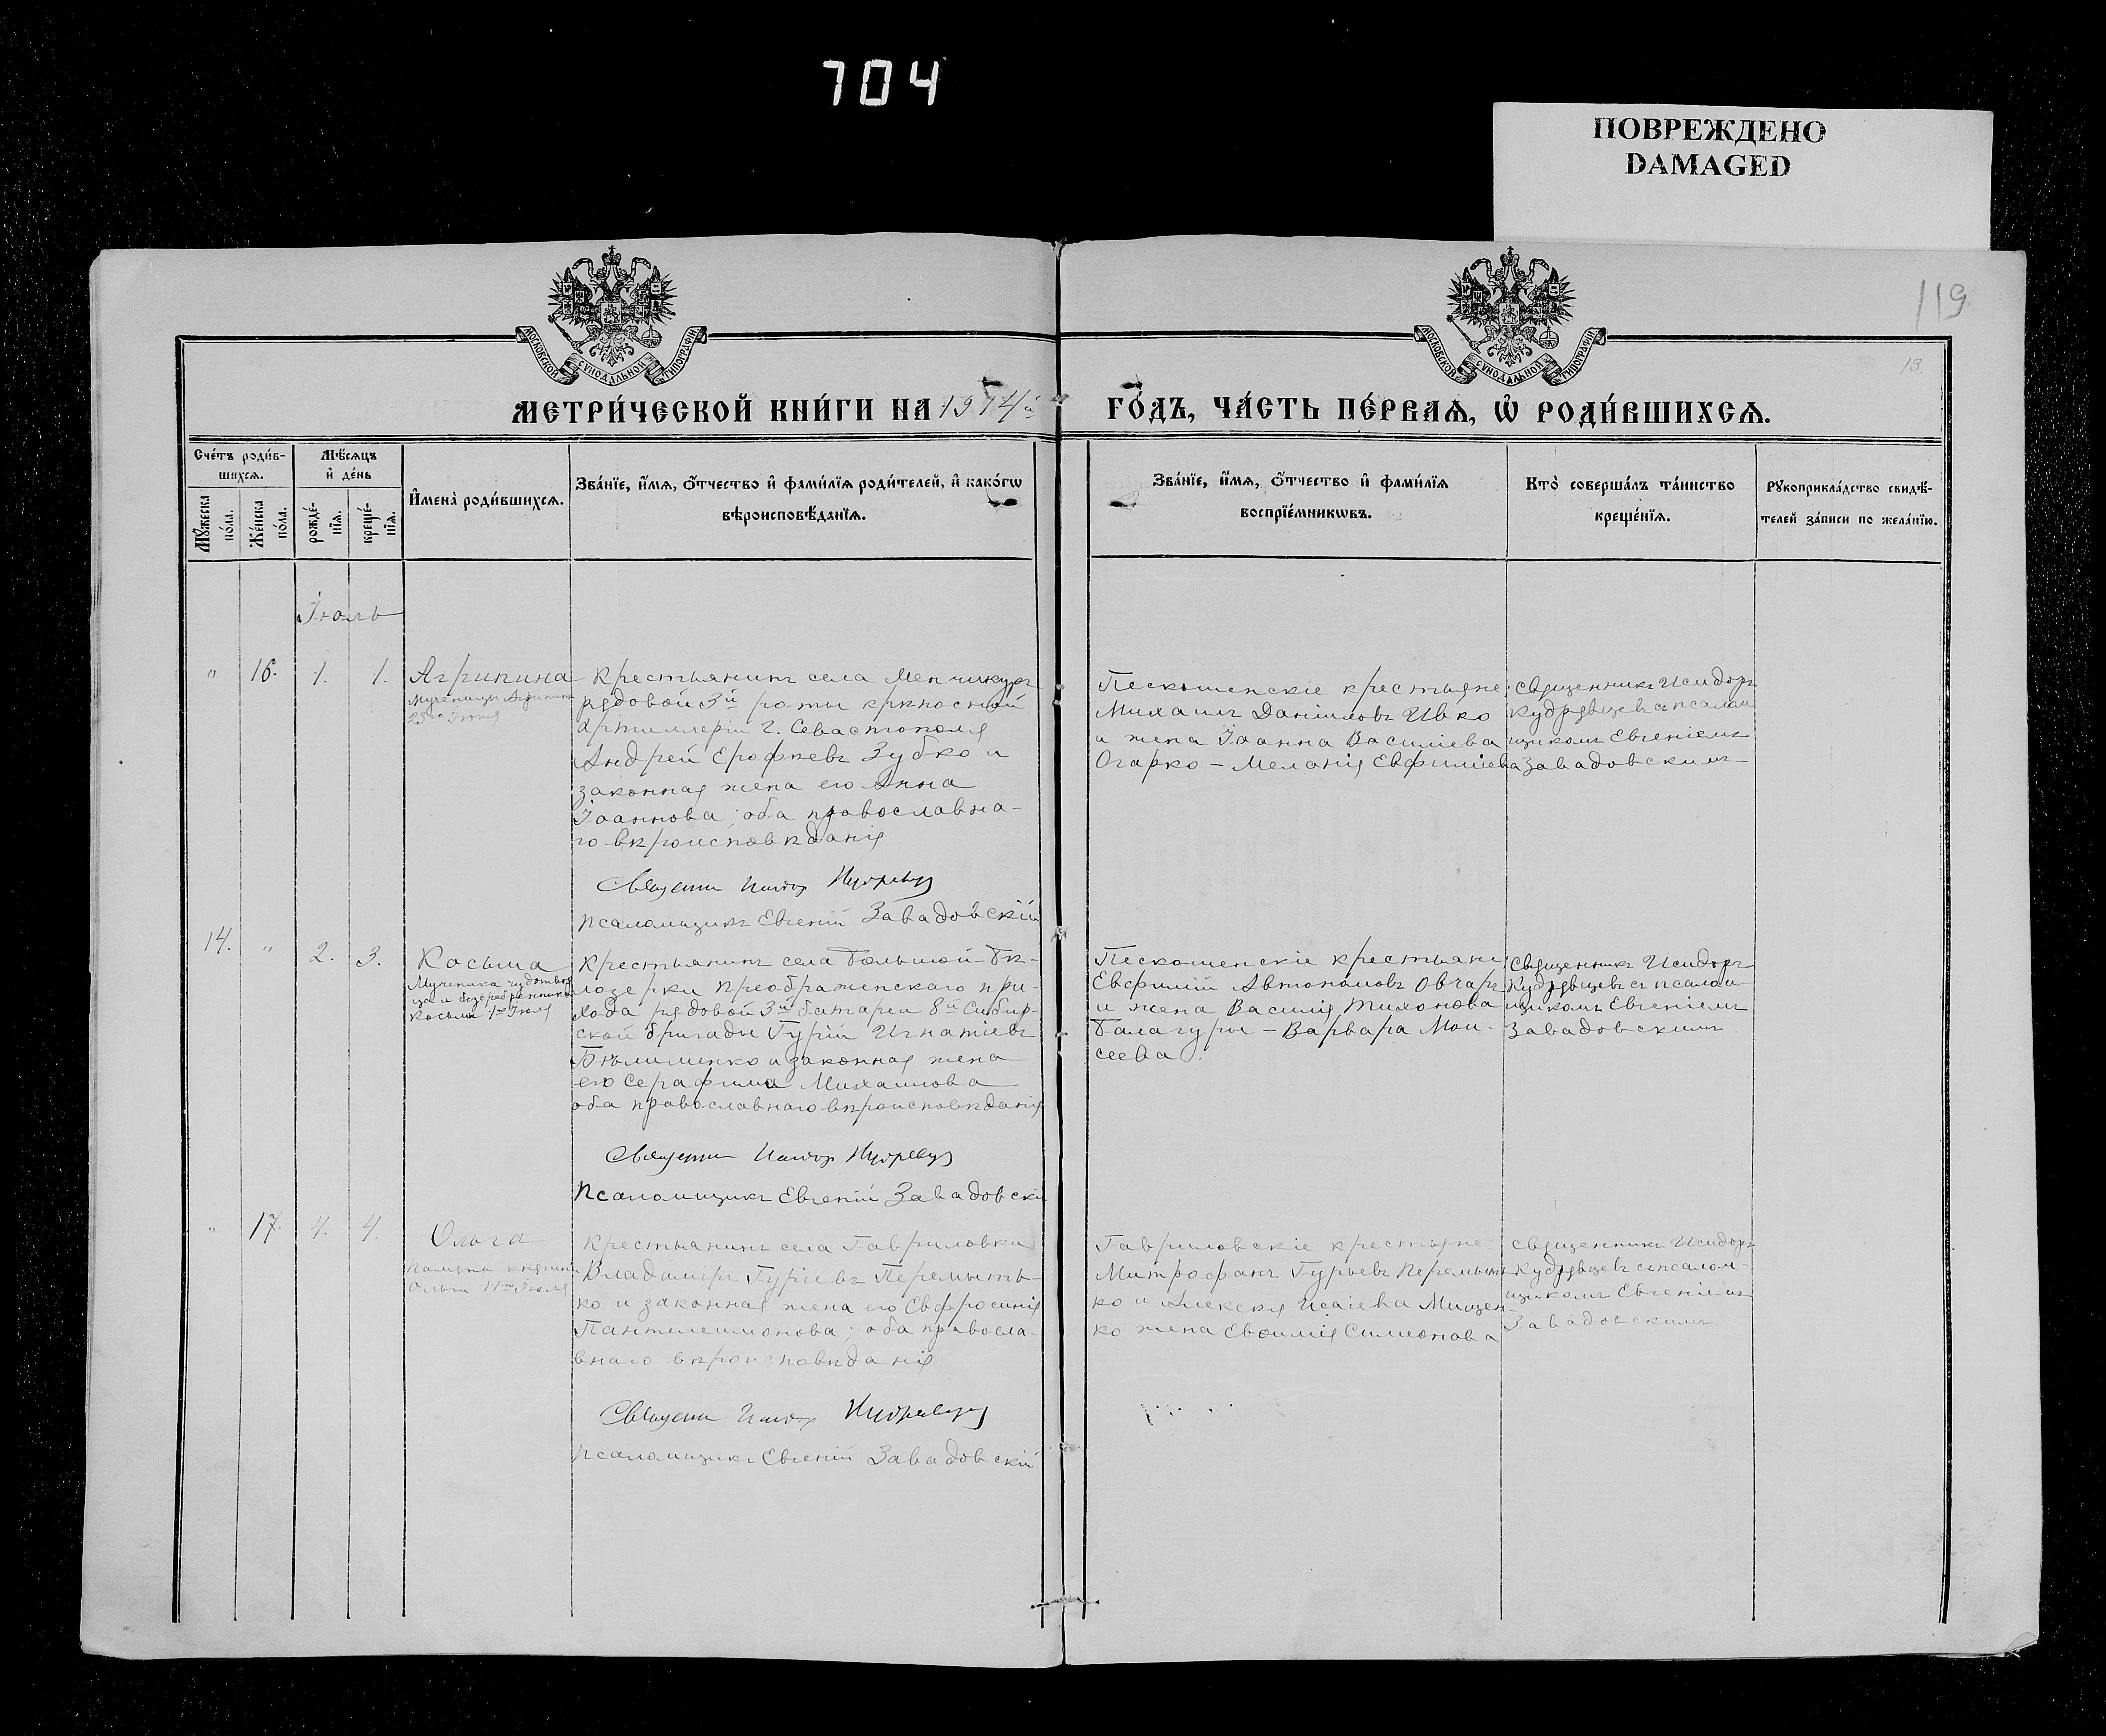 704
ПОВРЕЖДЕНО
DAMAGED
119
13.
МОСКОВСКОЙ СУНОДАЛЬНОЙ ТИПОГРАФІИ
МОСКОВСКОЙ СУНОДАЛЬНОЙ ТИПОГРАФІИ
МЕТРИ́ЧЕСКОЙ КНИ́ГИ НА 1914й ГО́ДЪ, ЧА́СТЬ ПЕ́РВАѦ, Ѡ҆ РОДИ́ВШИХСѦ.
Сче́тъ роди́в-
шихсѧ.
Мꙋ́жеска
по́ла.
Же́нска
по́ла.
Мѣ́сѧцъ
и҆ де́нь
рожде́-
нїѧ.
креще́-
нїѧ.
И҆мена̀ роди́вшихсѧ.
Зва́нїе, и҆́мѧ, ѻ҆́тчество и҆ фами́лїѧ роди́телей, и҆ како́гѡ
вѣроисповѣ́данїѧ.
Зва́нїе, и҆́мѧ, ѻ҆́тчество и҆ фами́лїѧ
воспрїе́мникѡвъ.
Кто̀ соверша́лъ та́инство
креще́нїѧ.
Рꙋкоприкла́дство свидѣ́-
телей за́писи по жела́нїю.
Іюль
" 16. 1. 1. Агрипина
Мученицы Агрипины
23го Іюня
Крестьянинъ села Менчикуръ
рядовой 3й роты крѣпосной
Артиллеріи г. Севастополя
Андрей Ерофѣевъ Зубко и
законная жена его Анна
Іоаннова; оба православна-
го вѣроисповѣданія
Священникъ Исидоръ Кудрявцевъ
Псаломщикъ Евгеній Завадовскій
Пескошенскіе крестьяне:
Михаилъ Даніиловъ Ивко
и жена Іоанна Василіева
Огарко – Меланія Евфиміева
Священникъ Исидоръ
Кудрявцевъ съ псалом
щикомъ Евгеніемъ
Завадовскимъ
14. " 2. 3. Косьма
Мученика чудотвор
ца и безсребренника
Косьмы 1го Іюля
Крестьянинъ села Большой-Бѣ-
лозерки Преображенскаго при-
хода рядовой 3й батареи 8й Сибир-
ской бригады Гурій Игнатіевъ
Бѣлименко и законная жена
его Серафима Михаилова
оба православнаго вѣроисповѣданія
Священникъ Исидоръ Кудрявцевъ
Псаломщикъ Евгеній Завадовскій
Пескошенскіе крестьяне
Евфимій Автономовъ Овчаръ
и жена Василія Тихонова
Балагуры – Варвара Мои-
сеева.
Священникъ Исидоръ
Кудрявцевъ съ псалом
щикомъ Евгеніемъ
Завадовскимъ
" 17. 4. 4. Ольга
Память княгини
Ольги 11го Іюля
Крестьянинъ села Гавриловки
Владиміръ Гуріевъ Перемыть-
ко и законная жена его Евфросинія
Пантелеимонова; оба правосла-
внаго вѣроисповѣданія
Священникъ Исидоръ Кудрявцевъ
Псаломщикъ Евгеній Завадовскій
Гавриловскіе крестьяне:
Митрофанъ Гурьевъ Перемыть
ко и Алексѣя Исаіева Мищен-
ко жена Евѳимія Симеонова
Священникъ Исидоръ
Кудрявцевъ съ псалом-
щикомъ Евгеніемъ
Завадовскимъ